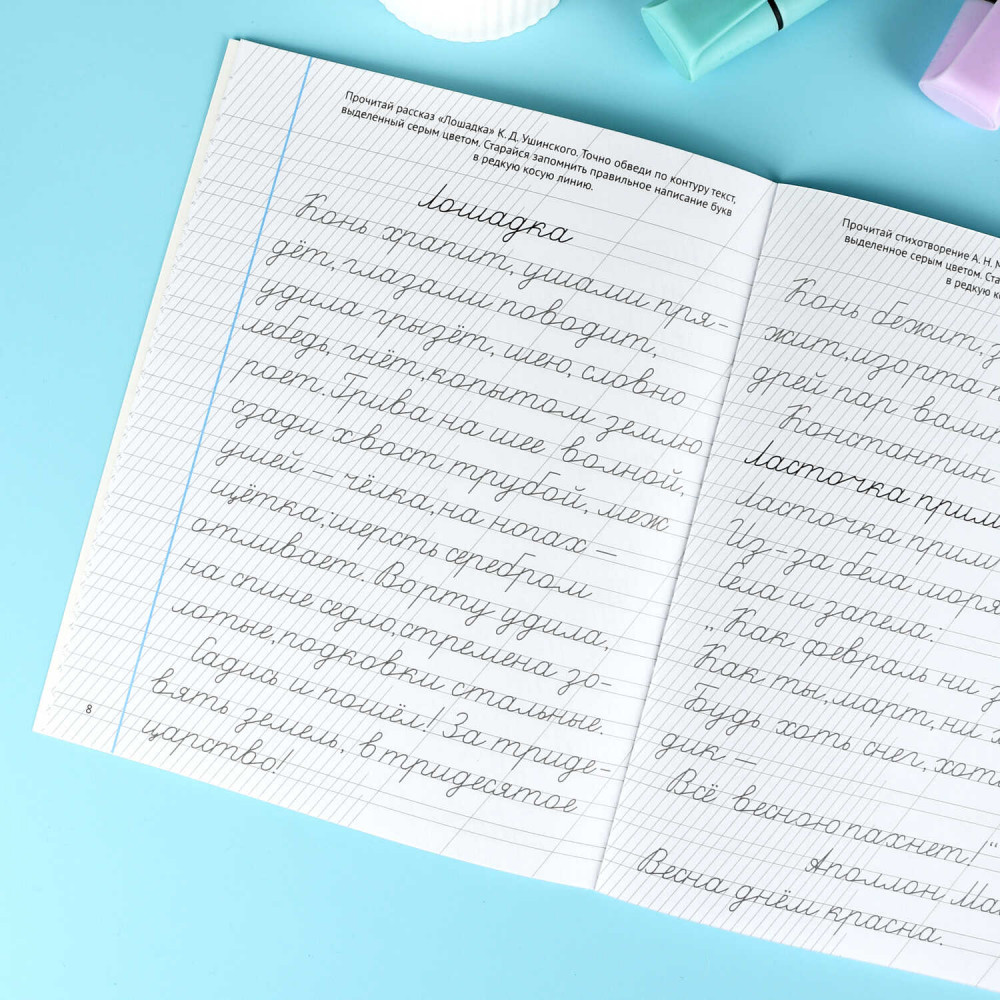 Прочитай рассказ «Лошадка» К. Д. Ушинского. Точно обведи по контуру текст,
выделенный серым цветом. Старайся запомнить правильное написание букв
в редкую косую линию.
Лошадка
Конь храпит, ушами пря-
дёт, глазами поводит,
удила грызёт, шею, словно
лебедь, гнёт, копытом землю
роет. Грива на шее волной,
сзади хвост трубой, меж
ушей — чёлка, на ногах —
щётка; шерсть серебром
отливает. В орту удила,
на спине седло, стремена зо-
лотые, подковки стальные.
Садись и пошёл! За триде-
вять земель, в тридесятое
царство!
8
Прочитай стихотворение А. Н. М
выделенное серым цветом. Ста
в редкую к
Конь бежит,
жит, изорта
дрей пар валит
Константин
Ласточка прим
Ласточка прим
Из-за бела моря
Села и запела.
„Как февраль ни з
Как ты, март, ни х
Будь хоть снег, хот
дик —
Всё весною пахнет!“
Аполлон Май
Весна днём красна.